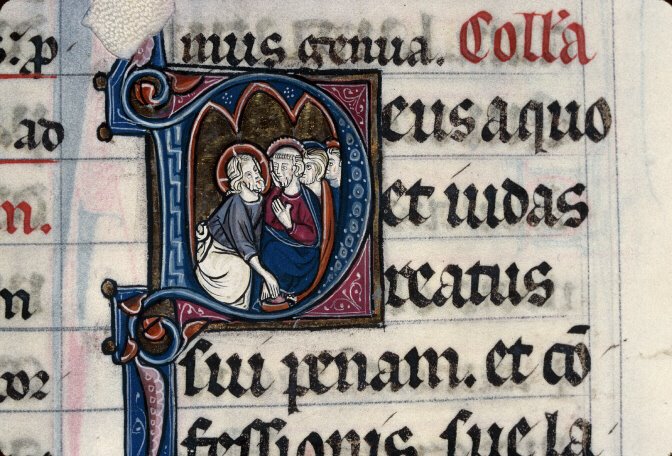 s. p
ad
n.
m
cor
mus genua. Coll'a
Deus a quo
et iudas
reatus
sui penam. et cō
fessionis sue la